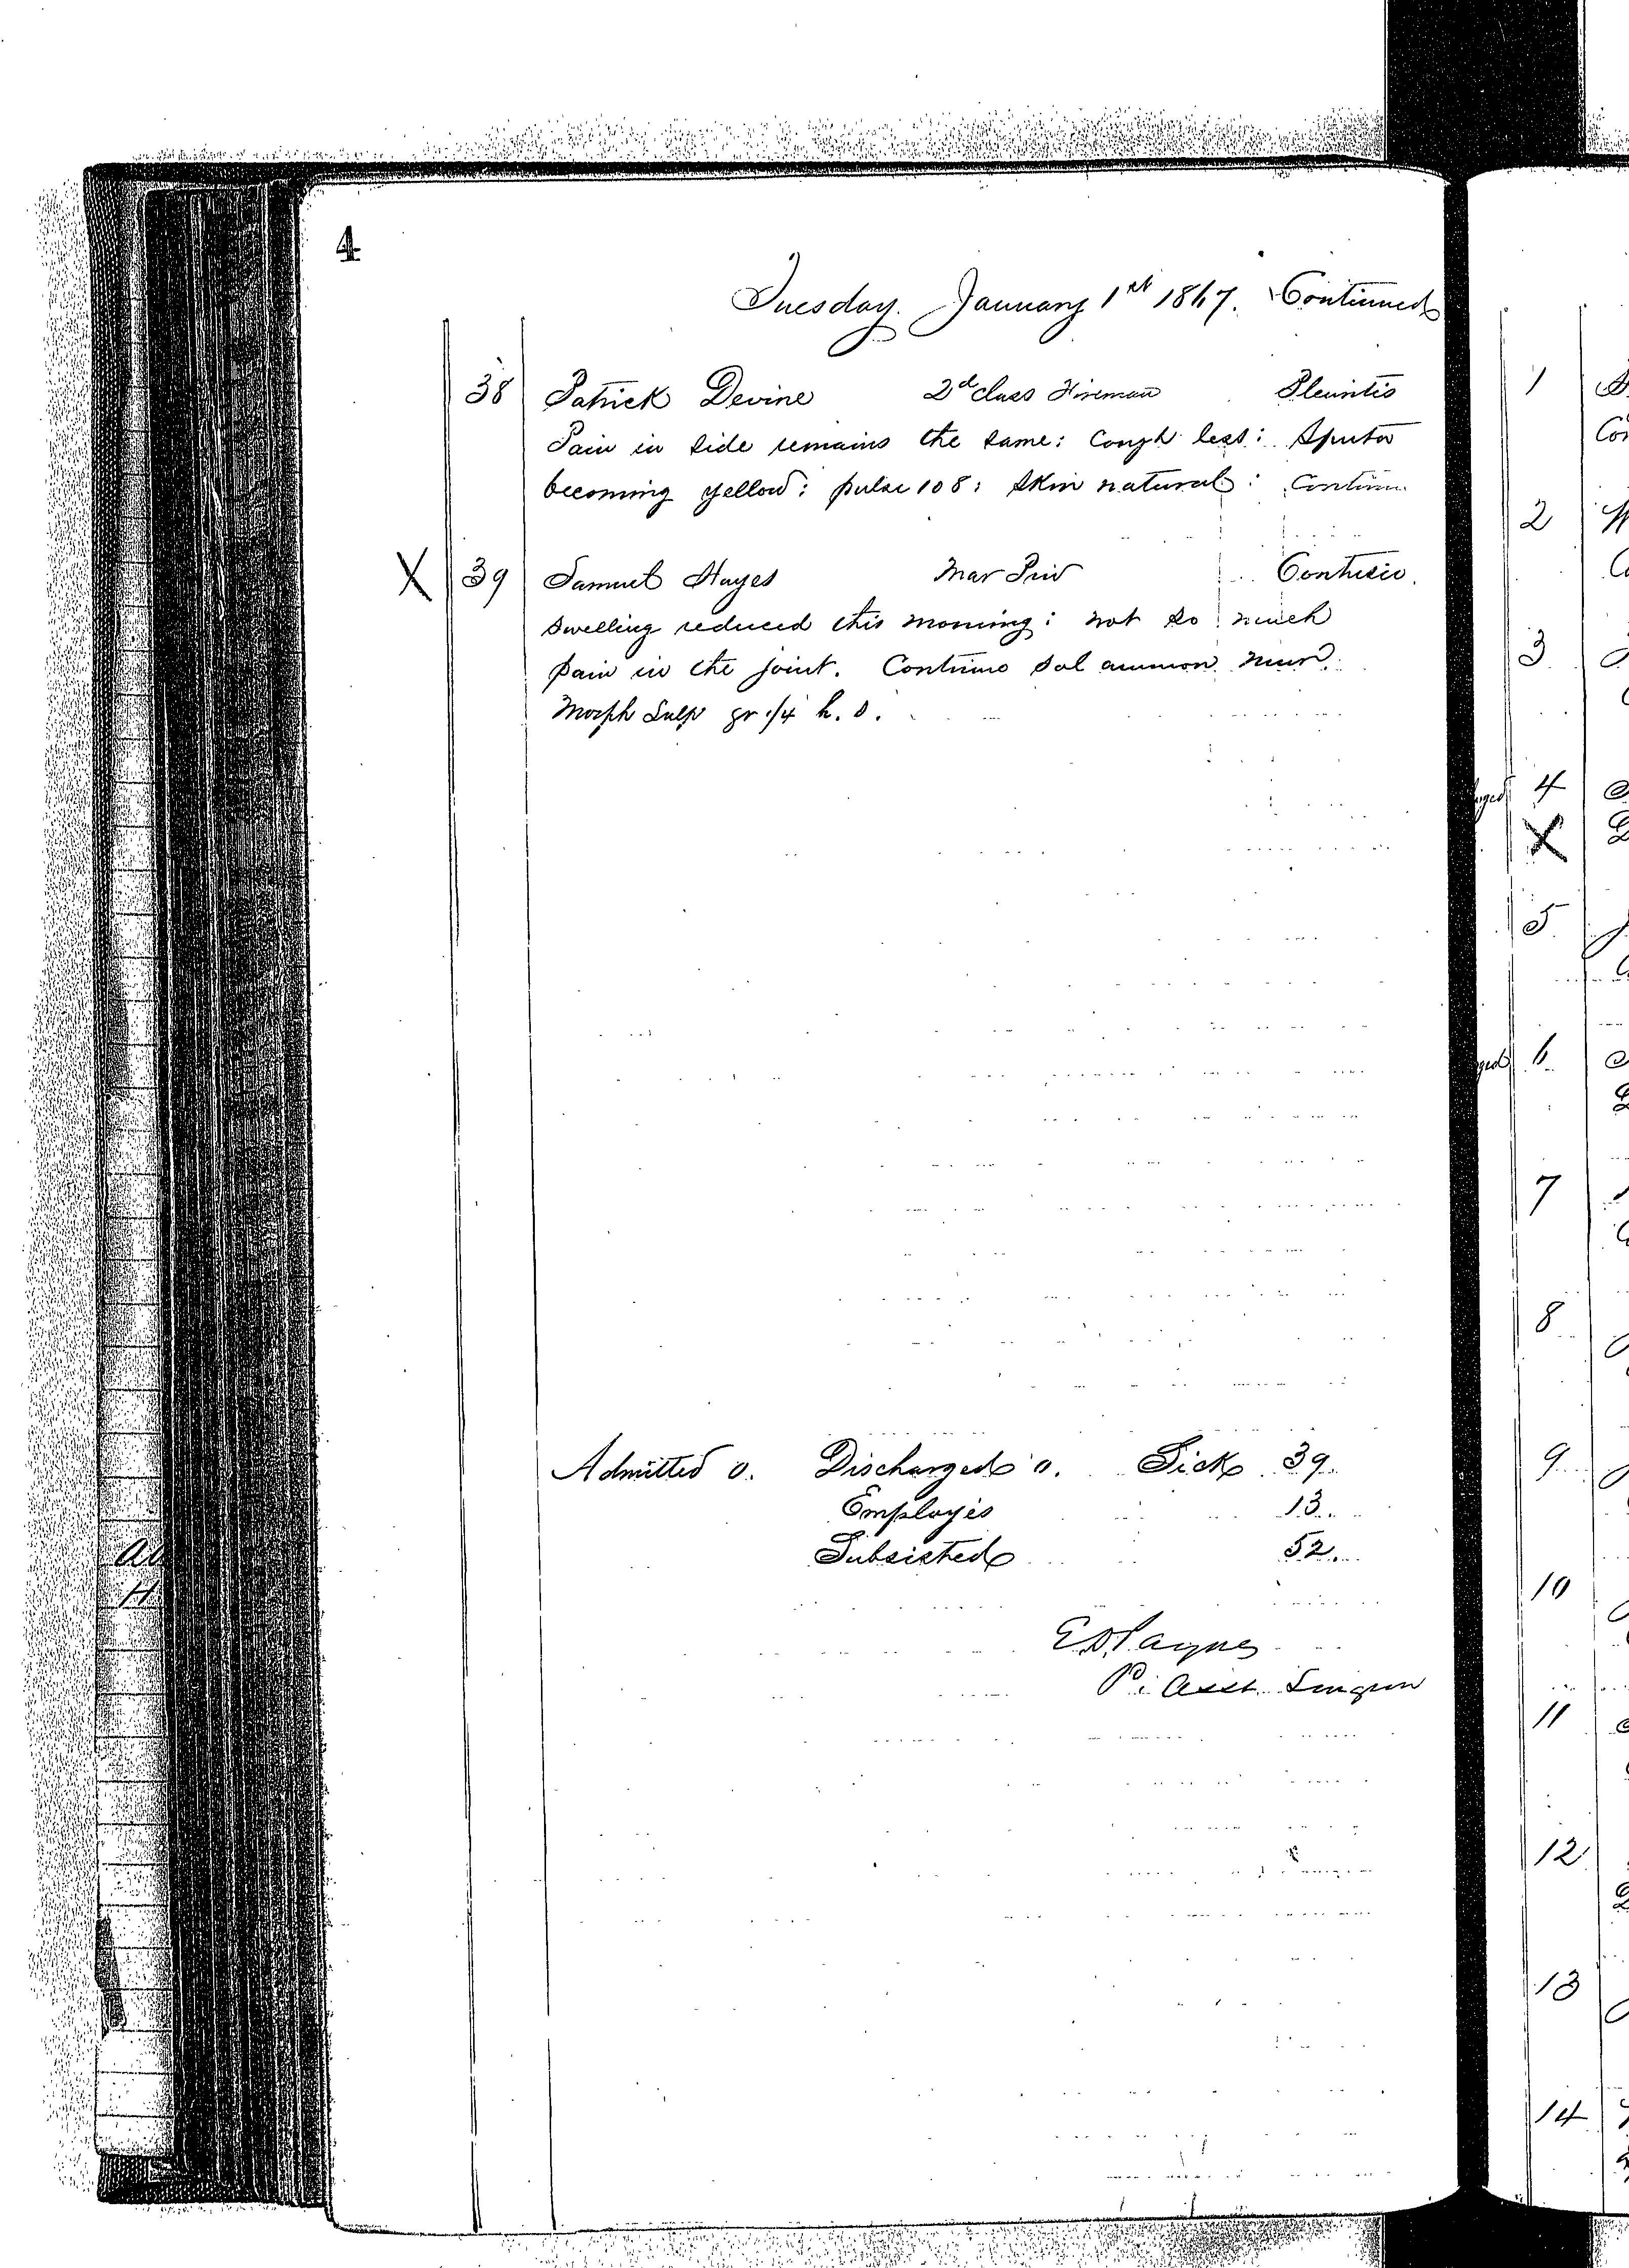 4
Tuesday. January 1st 1867. Continued
38 Patrick Devine 2d class Fireman Pleuritis
Pain in side remains the same: Cough less: Sputa
becoming yellow: pulse 108: Skin natural: Continu
X 39 Samuel Hayes Mar Priv Contusio.
Swelling reduced this morning: not so much
pain in the joint. Continue Sal ammon mur.
Morph Sulp gr 1/4 h. s.
Admitted 0. Discharged 0. Sick 39.
Employés 13.
Subsisted 52.
E D Payne
P. Asst. Surgeon
1
2
3
4
X
5
6
7
8
9
10
11
12
13
14